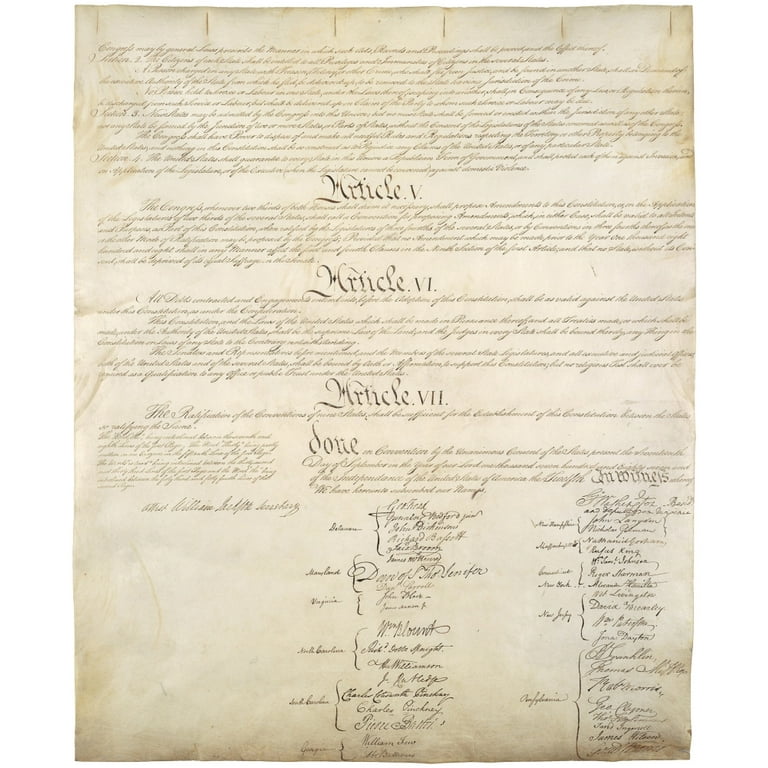 Congress may by general Laws prescribe the Manner in which such Acts, Records and Proceedings shall be proved, and the Effect thereof.
Section. 2. The Citizens of each State shall be entitled to all Privileges and Immunities of Citizens in the several States.
A Person charged in any State with Treason, Felony, or other Crime, who shall flee from Justice, and be found in another State, shall on Demand of
the executive Authority of the State from which he fled, be delivered up, to be removed to the State having Jurisdiction of the Crime.
No Person held to Service or Labour in one State, under the Laws thereof, escaping into another, shall, in Consequence of any Law or Regulation therein,
be discharged from such Service or Labour, but shall be delivered up on Claim of the Party to whom such Service or Labour may be due.
Section. 3. New States may be admitted by the Congress into this Union; but no new State shall be formed or erected within the Jurisdiction of any other State;
nor any State be formed by the Junction of two or more States, or Parts of States, without the Consent of the Legislatures of the States concerned as well as of the Congress.
The Congress shall have Power to dispose of and make all needful Rules and Regulations respecting the Territory or other Property belonging to the
United States; and nothing in this Constitution shall be so construed as to Prejudice any Claims of the United States, or of any particular State.
Section. 4. The United States shall guarantee to every State in this Union a Republican Form of Government, and shall protect each of them against Invasion; and
on Application of the Legislature, or of the Executive (when the Legislature cannot be convened) against domestic Violence.
Article. V.
The Congress, whenever two thirds of both Houses shall deem it necessary, shall propose Amendments to this Constitution, or, on the Application
of the Legislatures of two thirds of the several States, shall call a Convention for proposing Amendments, which, in either Case, shall be valid to all Intents
and Purposes, as Part of this Constitution, when ratified by the Legislatures of three fourths of the several States, or by Conventions in three fourths thereof, as the one
or the other Mode of Ratification may be proposed by the Congress; Provided that no Amendment which may be made prior to the Year One thousand eight
hundred and eight shall in any Manner affect the first and fourth Clauses in the Ninth Section of the first Article; and that no State, without its Con-
sent, shall be deprived of its equal Suffrage in the Senate.
Article. VI.
All Debts contracted and Engagements entered into, before the Adoption of this Constitution, shall be as valid against the United States
under this Constitution, as under the Confederation.
This Constitution, and the Laws of the United States which shall be made in Pursuance thereof; and all Treaties made, or which shall be
made, under the Authority of the United States, shall be the supreme Law of the Land; and the Judges in every State shall be bound thereby, any Thing in the
Constitution or Laws of any State to the Contrary notwithstanding.
The Senators and Representatives before mentioned, and the Members of the several State Legislatures, and all executive and judicial Officers,
both of the United States and of the several States, shall be bound by Oath or Affirmation, to support this Constitution; but no religious Test shall ever be
required as a Qualification to any Office or public Trust under the United States.
Article. VII.
The Ratification of the Conventions of nine States, shall be sufficient for the Establishment of this Constitution between the States
so ratifying the Same.
done in Convention by the Unanimous Consent of the States present the Seventeenth
Day of September in the Year of our Lord one thousand seven hundred and Eighty seven and
of the Independance of the United States of America the Twelfth In Witness whereof
We have hereunto subscribed our Names,
attest William Jackson Secretary
Go: Washington
and deputy from Virginia
Delaware
Gunning Bedford jun
John Dickinson
Richard Bassett
Jaco: Broom
Maryland
James McHenry
Dan of St Thos Jenifer
Danl Carroll
Virginia
John Blair
James Madison Jr
North Carolina
Wm Blount
Richd Dobbs Spaight
Hu Williamson
South Carolina
J. Rutledge
Charles Cotesworth Pinckney
Charles Pinckney
Pierce Butler
Georgia
William Few
Abr Baldwin
New Hampshire
John Langdon
Nicholas Gilman
Massachusetts
Nathaniel Gorham
Rufus King
Connecticut
Wm Saml Johnson
Roger Sherman
New York
Alexander Hamilton
New Jersey
Wil: Livingston
David Brearley
Wm Paterson
Jona: Dayton
Pensylvania
B Franklin
Thomas Mifflin
Robt Morris
Geo. Clymer
Thos FitzSimons
Jared Ingersoll
James Wilson
Gouv Morris